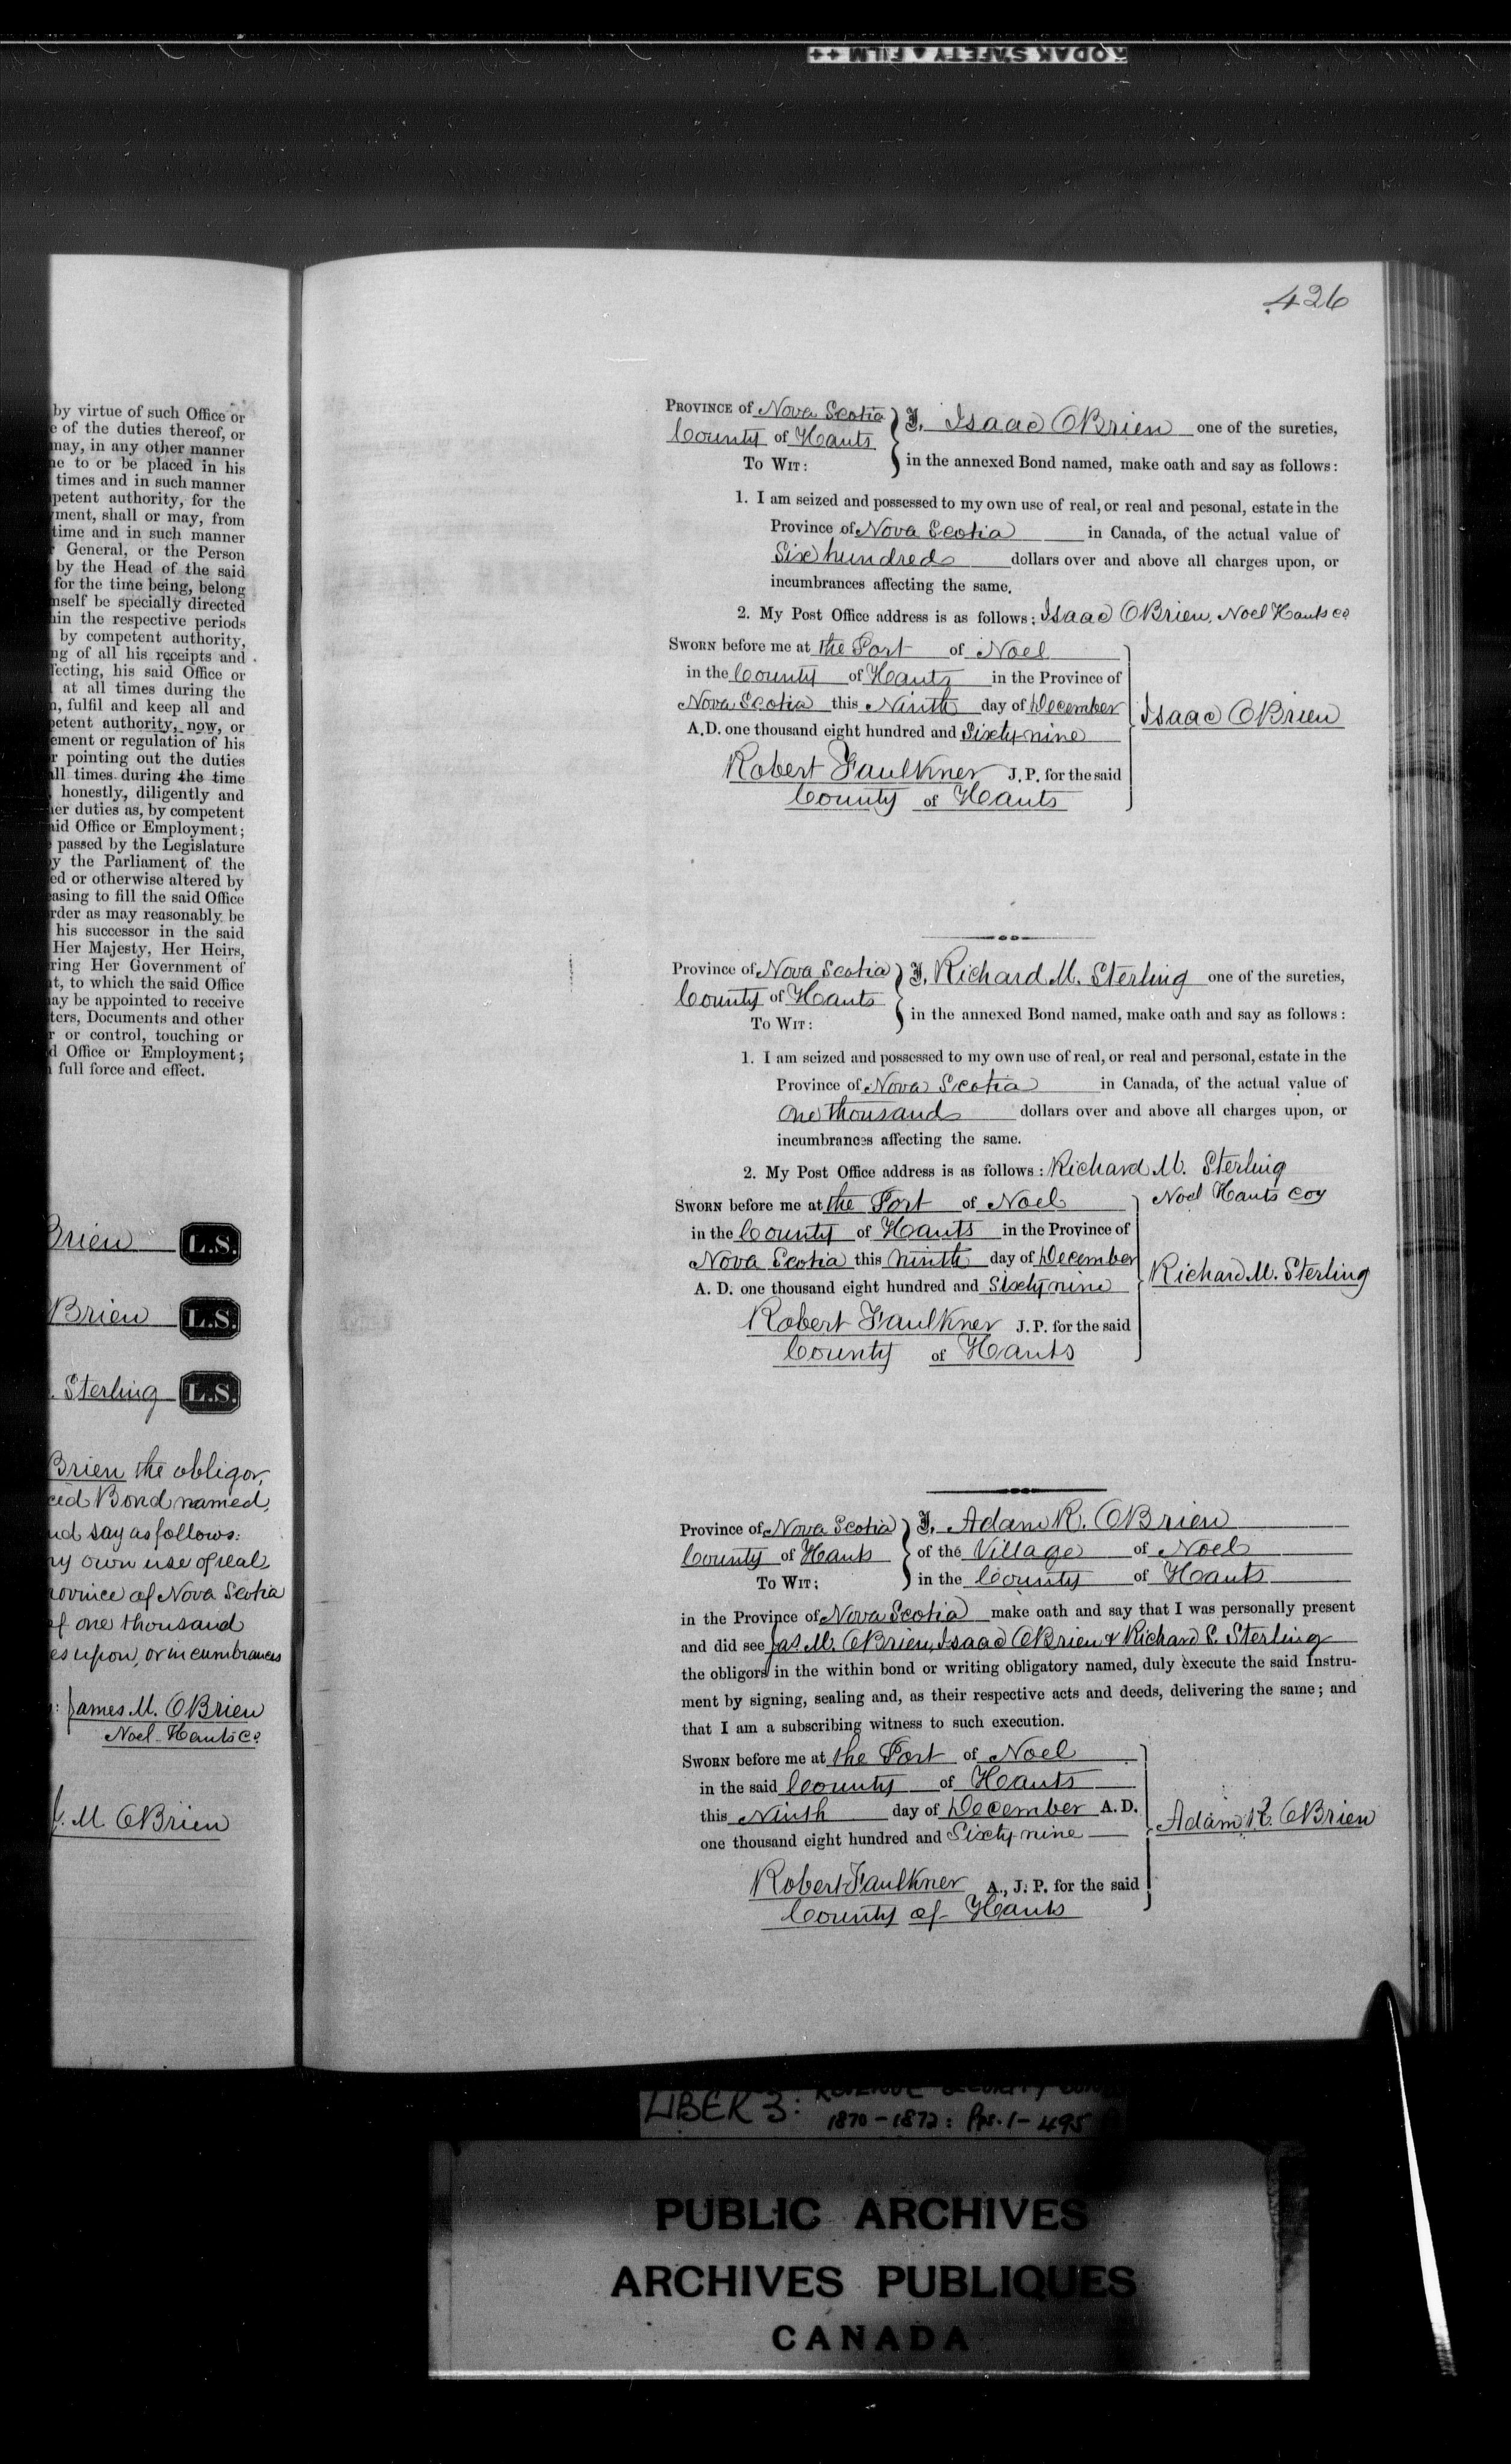 KODAK SAFETY ▲ FILM ++
by virtue of such Office or
e of the duties thereof, or
may, in any other manner
ne to or be placed in his
times and in such manner
petent authority, for the
ment, shall or may, from
time and in such manner
General, or the Person
by the Head of the said
for the time being, belong
nself be specially directed
hin the respective periods
by competent authority,
ng of all his receipts and
fecting, his said Office or
at all times during the
n, fulfil and keep all and
petent authority, now, or
ement or regulation of his
r pointing out the duties
all times during the time
honestly, diligently and
er duties as, by competent
aid Office or Employment;
passed by the Legislature
y the Parliament of the
ed or otherwise altered by
easing to fill the said Office
rder as may reasonably be
his successor in the said
Her Majesty, Her Heirs,
ring Her Government of
t, to which the said Office
ay be appointed to receive
ters, Documents and other
r or control, touching or
d Office or Employment;
full force and effect.
Brien L.S.
Brien L.S.
. Sterling L.S.
Brien the obligor,
ed Bond named,
nd say as follows:
my own use of real
rovince of Nova Scotia
of one thousand
es upon, or incumbrances
: James M. OBrien
Noel Hants Co
J. M OBrien
426
PROVINCE of Nova Scotia
County of Hants
TO WIT:
I, Isaac OBrien one of the sureties,
in the annexed Bond named, make oath and say as follows:
1. I am seized and possessed to my own use of real, or real and pesonal, estate in the
Province of Nova Scotia in Canada, of the actual value of
Six hundred dollars over and above all charges upon, or
incumbrances affecting the same.
2. My Post Office address is as follows: Isaac OBrien, Noel Hants Co
SWORN before me at the Port of Noel
in the County of Hants in the Province of
Nova Scotia this Ninth day of December
A.D. one thousand eight hundred and Sixty nine
Isaac OBrien
Robert Faulkner J. P. for the said
County of Hants
Province of Nova Scotia
County of Hants
TO WIT:
I, Richard M. Sterling one of the sureties,
in the annexed Bond named, make oath and say as follows:
1. I am seized and possessed to my own use of real, or real and personal, estate in the
Province of Nova Scotia in Canada, of the actual value of
One thousand dollars over and above all charges upon, or
incumbrances affecting the same.
2. My Post Office address is as follows: Richard M. Sterling
Noel Hants Coy
SWORN before me at the Port of Noel
in the County of Hants in the Province of
Nova Scotia this ninth day of December
A. D. one thousand eight hundred and Sixty nine
Richard M. Sterling
Robert Faulkner J. P. for the said
County of Hants
Province of Nova Scotia
County of Hants
TO WIT:
I, Adam R. OBrien
of the Village of Noel
in the County of Hants
in the Province of Nova Scotia make oath and say that I was personally present
and did see Jas M. OBrien, Isaac OBrien & Richard S. Sterling
the obligors in the within bond or writing obligatory named, duly execute the said Instru-
ment by signing, sealing and, as their respective acts and deeds, delivering the same; and
that I am a subscribing witness to such execution.
SWORN before me at the Port of Noel
in the said County of Hants
this Ninth day of December A. D.
one thousand eight hundred and Sixty nine
Adam R. OBrien
Robert Faulkner A., J. P. for the said
County of Hants
LIBER 3: REVENUE SECURITY
1870-1872: Pps. 1-495
PUBLIC ARCHIVES
ARCHIVES PUBLIQUES
CANADA